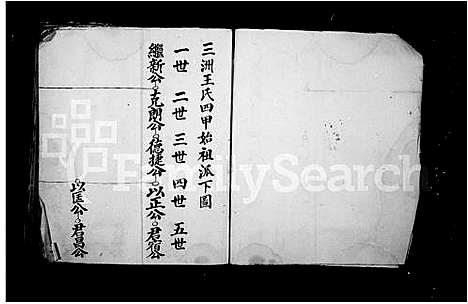 三洲王氏四甲始祖派下圖
一世 二世 三世 四世 五世
繼新公 克朗公 德捷公 以正公 君宿公
以匡公 君昌公
FamilySearch